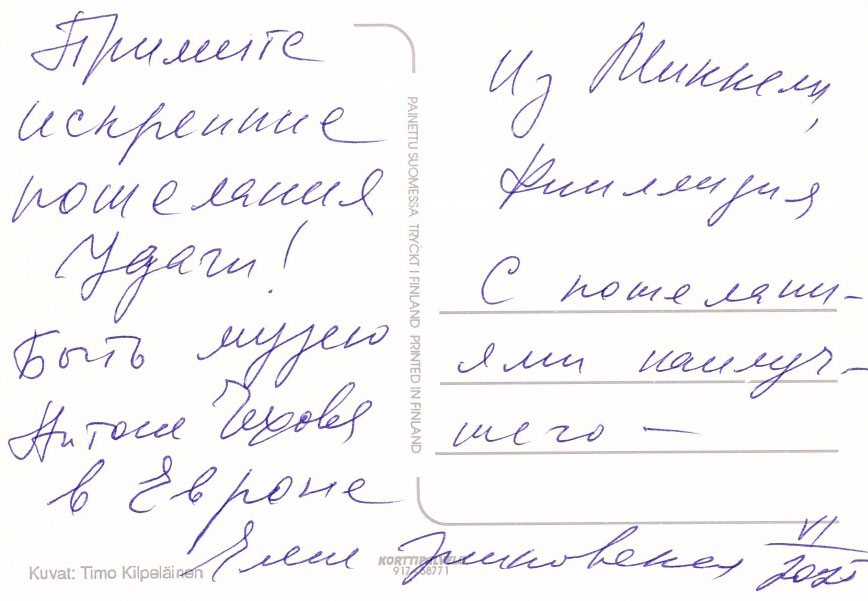 Примите
искренние
пожелания
Удачи!
Быть музею
Антона Чехова
в Европе
Из Миккели,
Финляндия
С пожелани-
ями наилуч-
шего —
VI
PAINETTU SUOMESSA TRYCKT I FINLAND PRINTED IN FINLAND
Kuvat: Timo Kilpeläinen